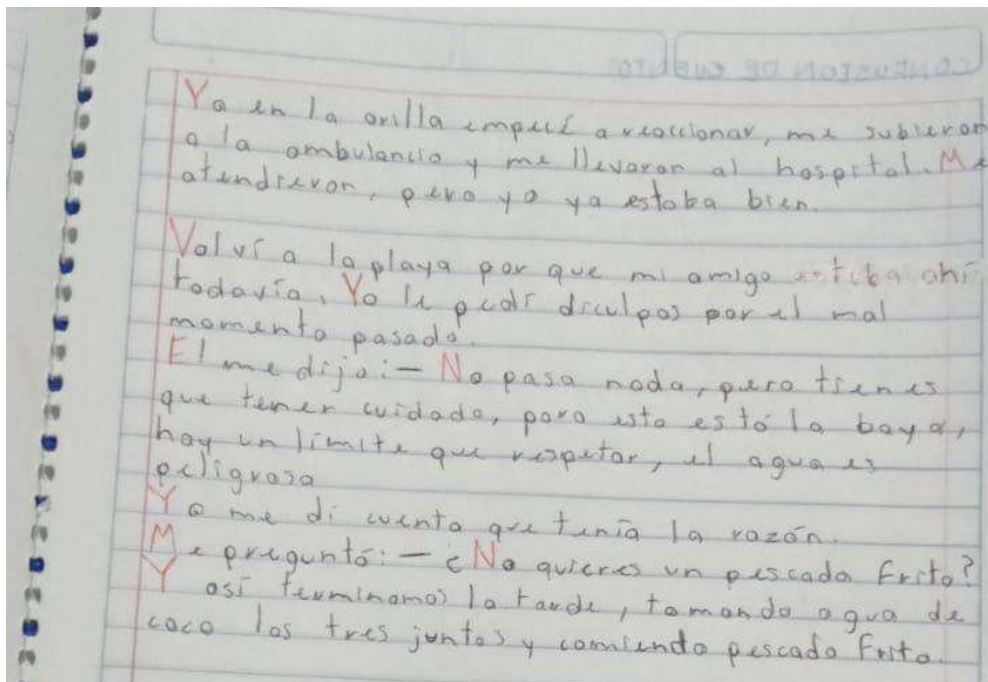 Ya en la orilla empecé a reaccionar, me subieron
a la ambulancia y me llevaron al hospital. Me
atendieron, pero yo ya estaba bien.
Volví a la playa por que mi amigo estaba ahí
todavía. Yo le pedí diculpas por el mal
momento pasado.
El me dijo: - No pasa nada, pero tienes
que tener cuidado, para esto está la baya,
hay un límite que respetar, el agua es
peligrosa
Yo me di cuenta que tenía la razón.
Me preguntó: - ¿No quieres un pescado frito?
Y así terminamos la tarde, tomando agua de
coco los tres juntos y comiendo pescado frito.